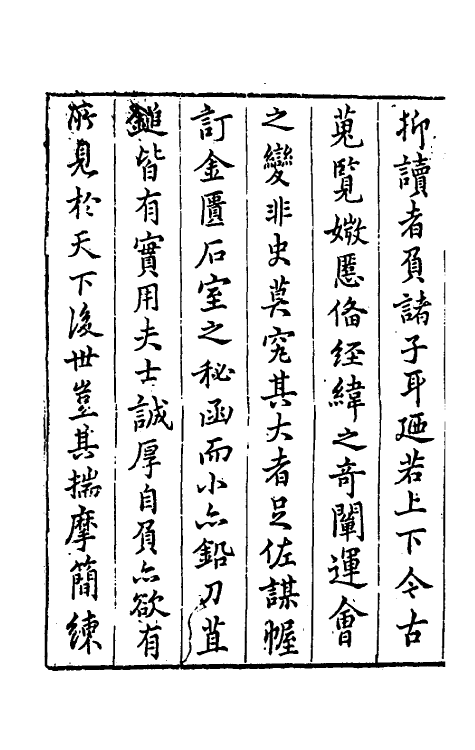 抑讀者負諸子耳廼若上下今古
蒐覽媺慝俻經緯之竒闡運會
之變非史莫究其大者足佐謀幄
訂金匱石室之秘函而小亦鉛刀苴
鎚皆有實用夫士誠厚自負亦欲有
所見於天下後世豈其揣摩簡練